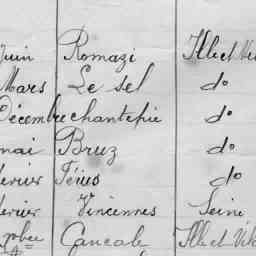 Juin Romazi Ille et Vil
Mars Le sel do
Décembre chantepie do
mai Bruz do
février do
février Vincennes Seine
Cancale Ille et Vil